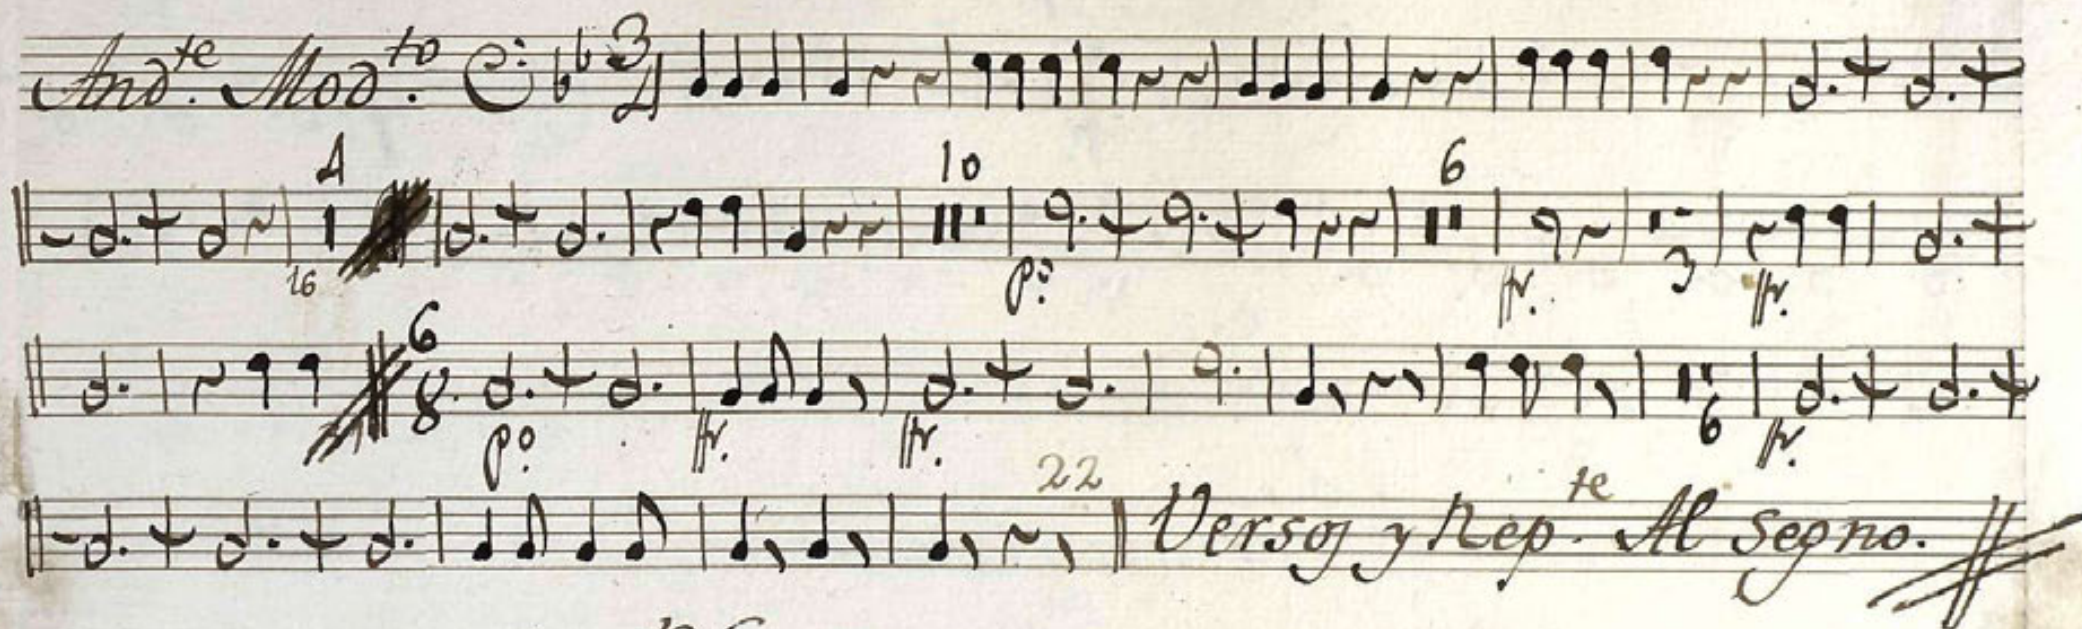 And.te Mod.to 3 4
4 10 6
16 p.o fr. 3 fr.
6 8 6
p.o fr. fr. fr.
22
Versos y Rep.te Al Segno.